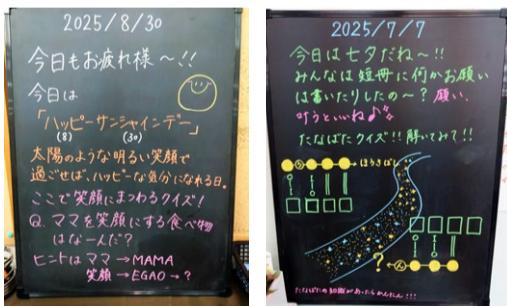 2025/8/30
今日もお疲れ様〜!!
今日は
「ハッピーサンシャインデー」
(8) (30)
太陽のような明るい笑顔で
過ごせば、ハッピーな気分になれる日。
ここで笑顔にまつわるクイズ!
Q. ママを笑顔にする食べ物
はなーんだ?
ヒントはママ→MAMA
笑顔→EGAO→?
2025/7/7
今日は七夕だね〜!!
みんなは短冊に何かお願い
は書いたりしたの〜?願い、
叶うといいね♪
たなばたクイズ!!解いてみて!!
ほうきぼし
?
ん
たなばたの知識があったらかんたん!!!